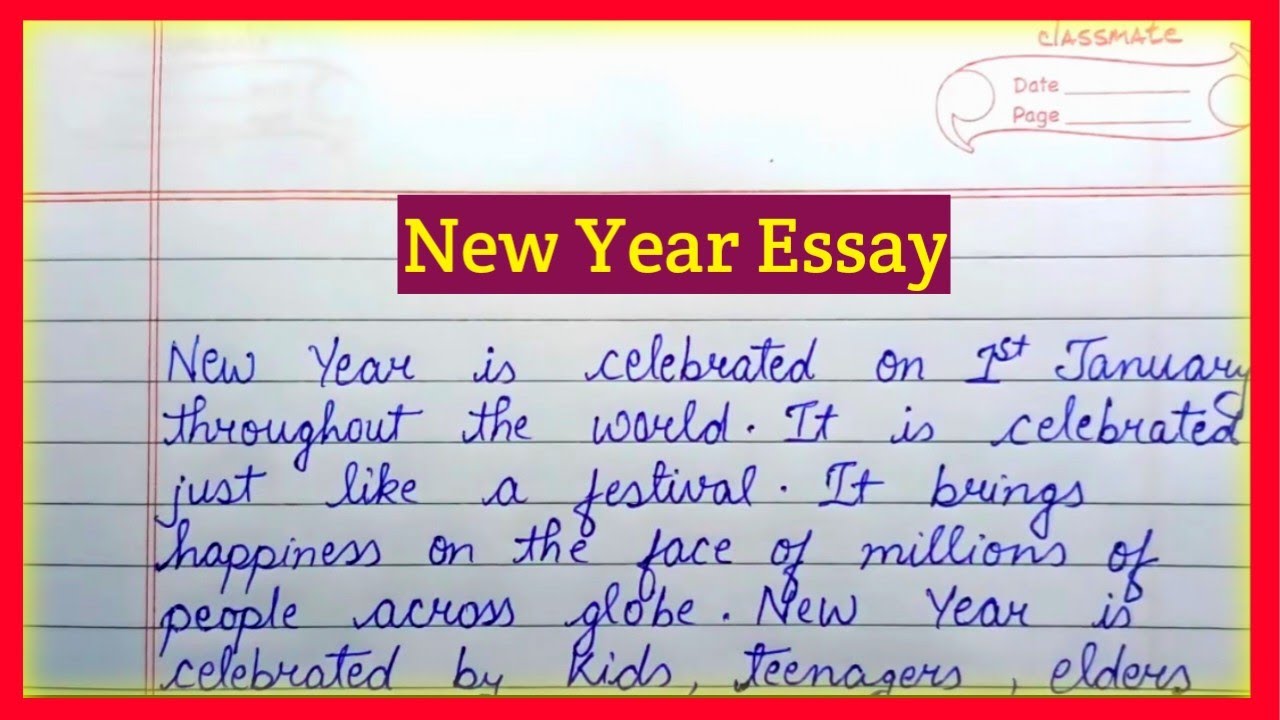 classmate
Date
Page
New Year Essay
New Year is celebrated on 1st January
throughout the world. It is celebrated
just like a festival. It brings
happiness on the face of millions of
people across globe. New Year is
celebrated by kids, teenagers, elders